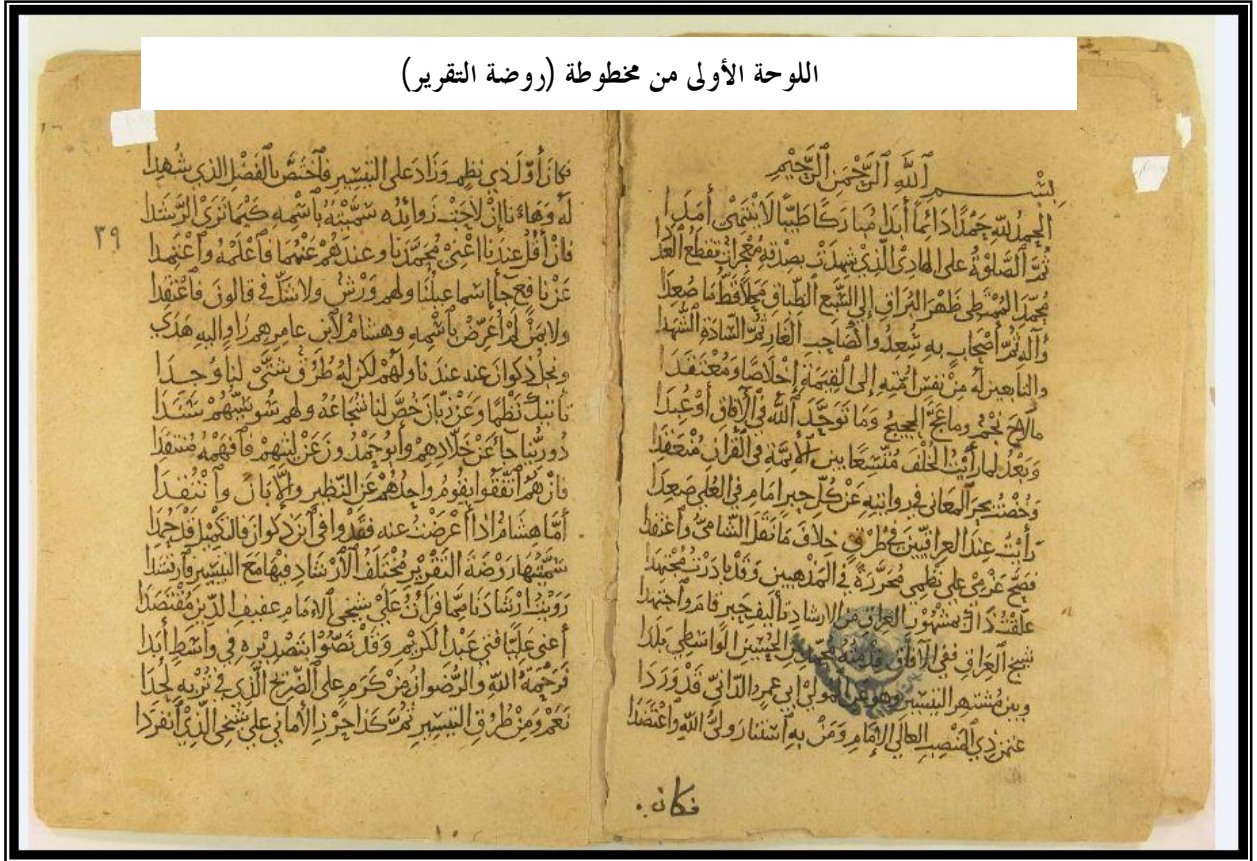 اللوحة الأولى من مخطوطة (روضة التقرير)
بسم الله الرحمن الرحيم
الحمد لله حمدا دائما أبدا مباركا طيبا لا ينتهى أمدا
ثم الصلوة على الهادى الذي شهدت بصدقه معجزات تقطع العددا
محمد الممتطى ظهر البراق إلى السبع الطباق محلا قط ما صعدا
وآله ثم أصحاب به سعدوا الصاحب الغار ثم السادة الشهدا
والتابعين له من نفس أمته إلى القيمة إخلاصا ومعتقدا
مالاح نجم وماعج الحجيج وما توحد الله في الآفاق أو عبدا
وبعد لما رأيت الخلف متسعا بين الأئمة في القرآن منعقدا
وخضت بحر المعانى في روايته عن كل حبر امام في العلى صعدا
رأيت عند العراقيين في طرق خلاف ما نقل الشامى واعتقدا
فصح عزمى على نظمى محررة في المذهبين وقد بادرت مجتهدا
علقت ذاك بمشهور العراق من الارشاد تأليف حبر قام واجتهدا
شيخ العراق ففى الآفاق محمد بن الحسين الواسطي بلدا
وبين مشتهر التيسير وهو عن المولى ابى عمرو الدانى قد وردا
عثمن ذي المنصب العالى الامام ومن به استنار ولى الله واعتضدا
فكان
٣٩
فكان أول ذي نظم وزاد على التيسير فاختص بالفضل الذى شهدا
له وهاء ناإن لاحت زوائده سميته باسمه كيما نرى الرشدا
فان أقل عندنا أعنى محمدنا وعندهم عنهما فاعلمه واعتمدا
عن نافع جا إسماعيلنا ولهم ورش ولا شك في قالون فاعتقدا
ولا بمن لم أعرض باسمه وهشام لابن عامرهم راو اليه هدى
ونجل ذكوان عنه عندنا ولهم لكن له طرق شتى لنا وجدا
تأتيك نظما وعن زبان خص لنا شجاعه ولهم سوسيهم سندا
دورينا جا عن خلادهم وأبو حمدون عن ليثهم فافهمه منتقدا
فان هم اتفقوا يقوم واحدهم عن النظير والا بان وانتقدا
أما هشام اذا أعرضت عنه فقدوا فى ابن ذكوان فالتكميل قد حمدا
سميتها روضة التقرير مختلف الارشاد فيها مع التيسير فارتشدا
رويت ارشادنا مما قرأت على شيخى الامام عفيف الدين مقتصدا
أعنى عليا فتى عبد الكريم وقد نصوا بتصديره في واسط أبدا
فرحمة الله والرضوان من كرم على الضريح الذى في تربه لحدا
نعم ومن طرق التيسير ثم كذا حرز الأمانى على شيخى الذى انفردا